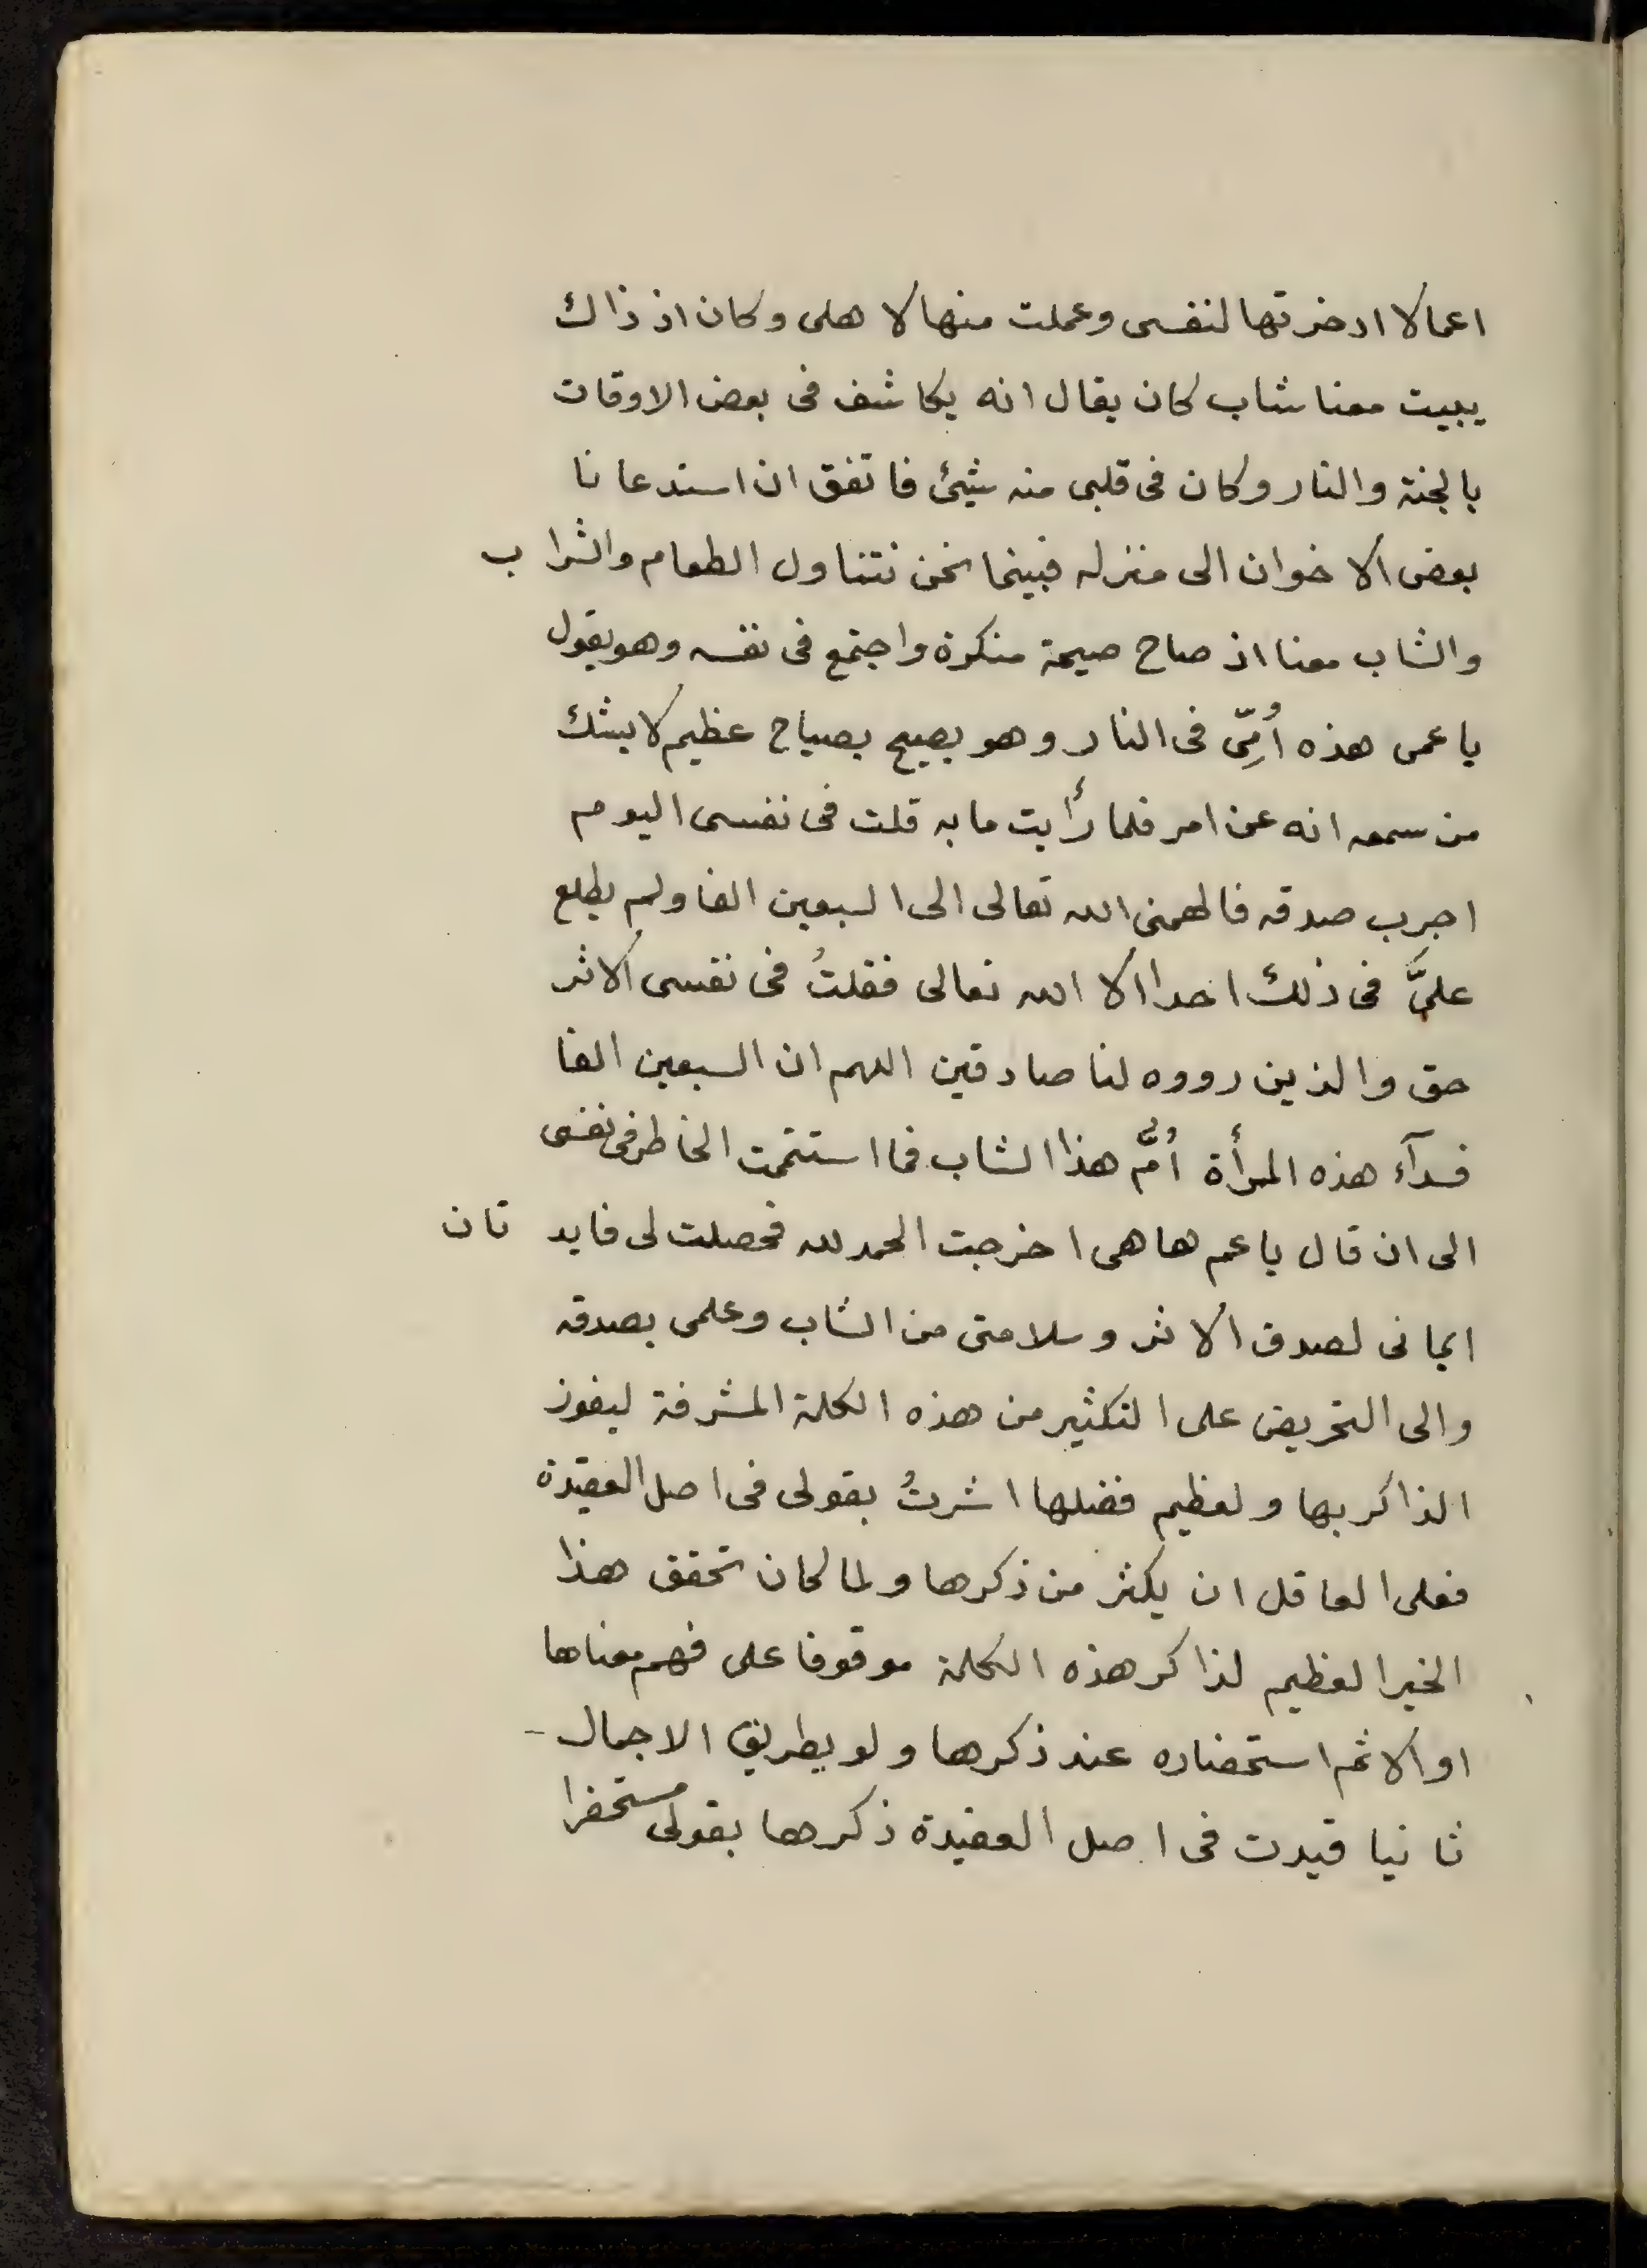 اعمالا ادخرتها لنفسى وعملت منها لاهلى وكان اذ ذاك
يبيت معنا شاب كان يقال انه يكاشف فى بعض الاوقات
بالجنة والنار وكان فى قلبى منه شيئ فاتفق ان استدعانا
بعض الاخوان الى منزله فبينما نحن نتناول الطعام والشراب
والشاب معنا اذ صاح صيحة منكرة واجتمع فى نفسه وهو يقول
يا عمى هذه أُمِّى فى النار وهو يصيح بصياح عظيم لا يشك
من سمعه انه عن امر فلما رأيت ما به قلت فى نفسى اليوم
اجرب صدقه فالهمنى الله تعالى الى السبعين الفا ولم يطلع
علىَّ فى ذلك احدا الا الله تعالى فقلتُ فى نفسى الاثر
حق والذين رووه لنا صادقين اللهم ان السبعين الفا
فدآء هذه المرأة أُمُّ هذا الشاب فما استتمت الخاطر فى نفسى
الى ان قال يا عم ها هى اخرجت الحمد لله فحصلت لى فايدتان
ايمانى لصدق الاثر وسلامتى من الشاب وعلمى بصدقه
والى التحريض على التكثير من هذه الكلمة المشرفة ليفوز
الذاكر بها ولعظيم فضلها اشرتُ بقولى فى اصل العقيدة
فعلى العاقل ان يكثر من ذكرها ولما كان تحقق هذا
الخير العظيم لذاكر هذه الكلمة موقوفا على فهم معناها
اولا ثم استحضاره عند ذكرها ولو بطريق الاجمال
ثانيا قيدت فى اصل العقيدة ذكرها بقولى مستحضرا